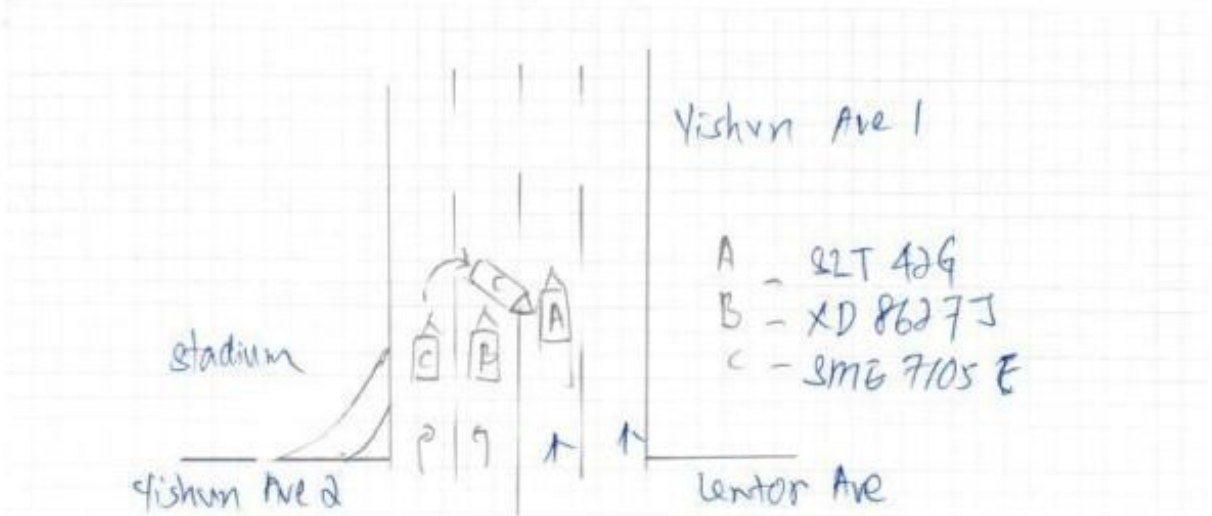 Yishun Ave 1
A - SLT 42G
B - XD 8627J
C - SME 7105 E
stadium
C B C A
Yishun Ave 2
Lentor Ave